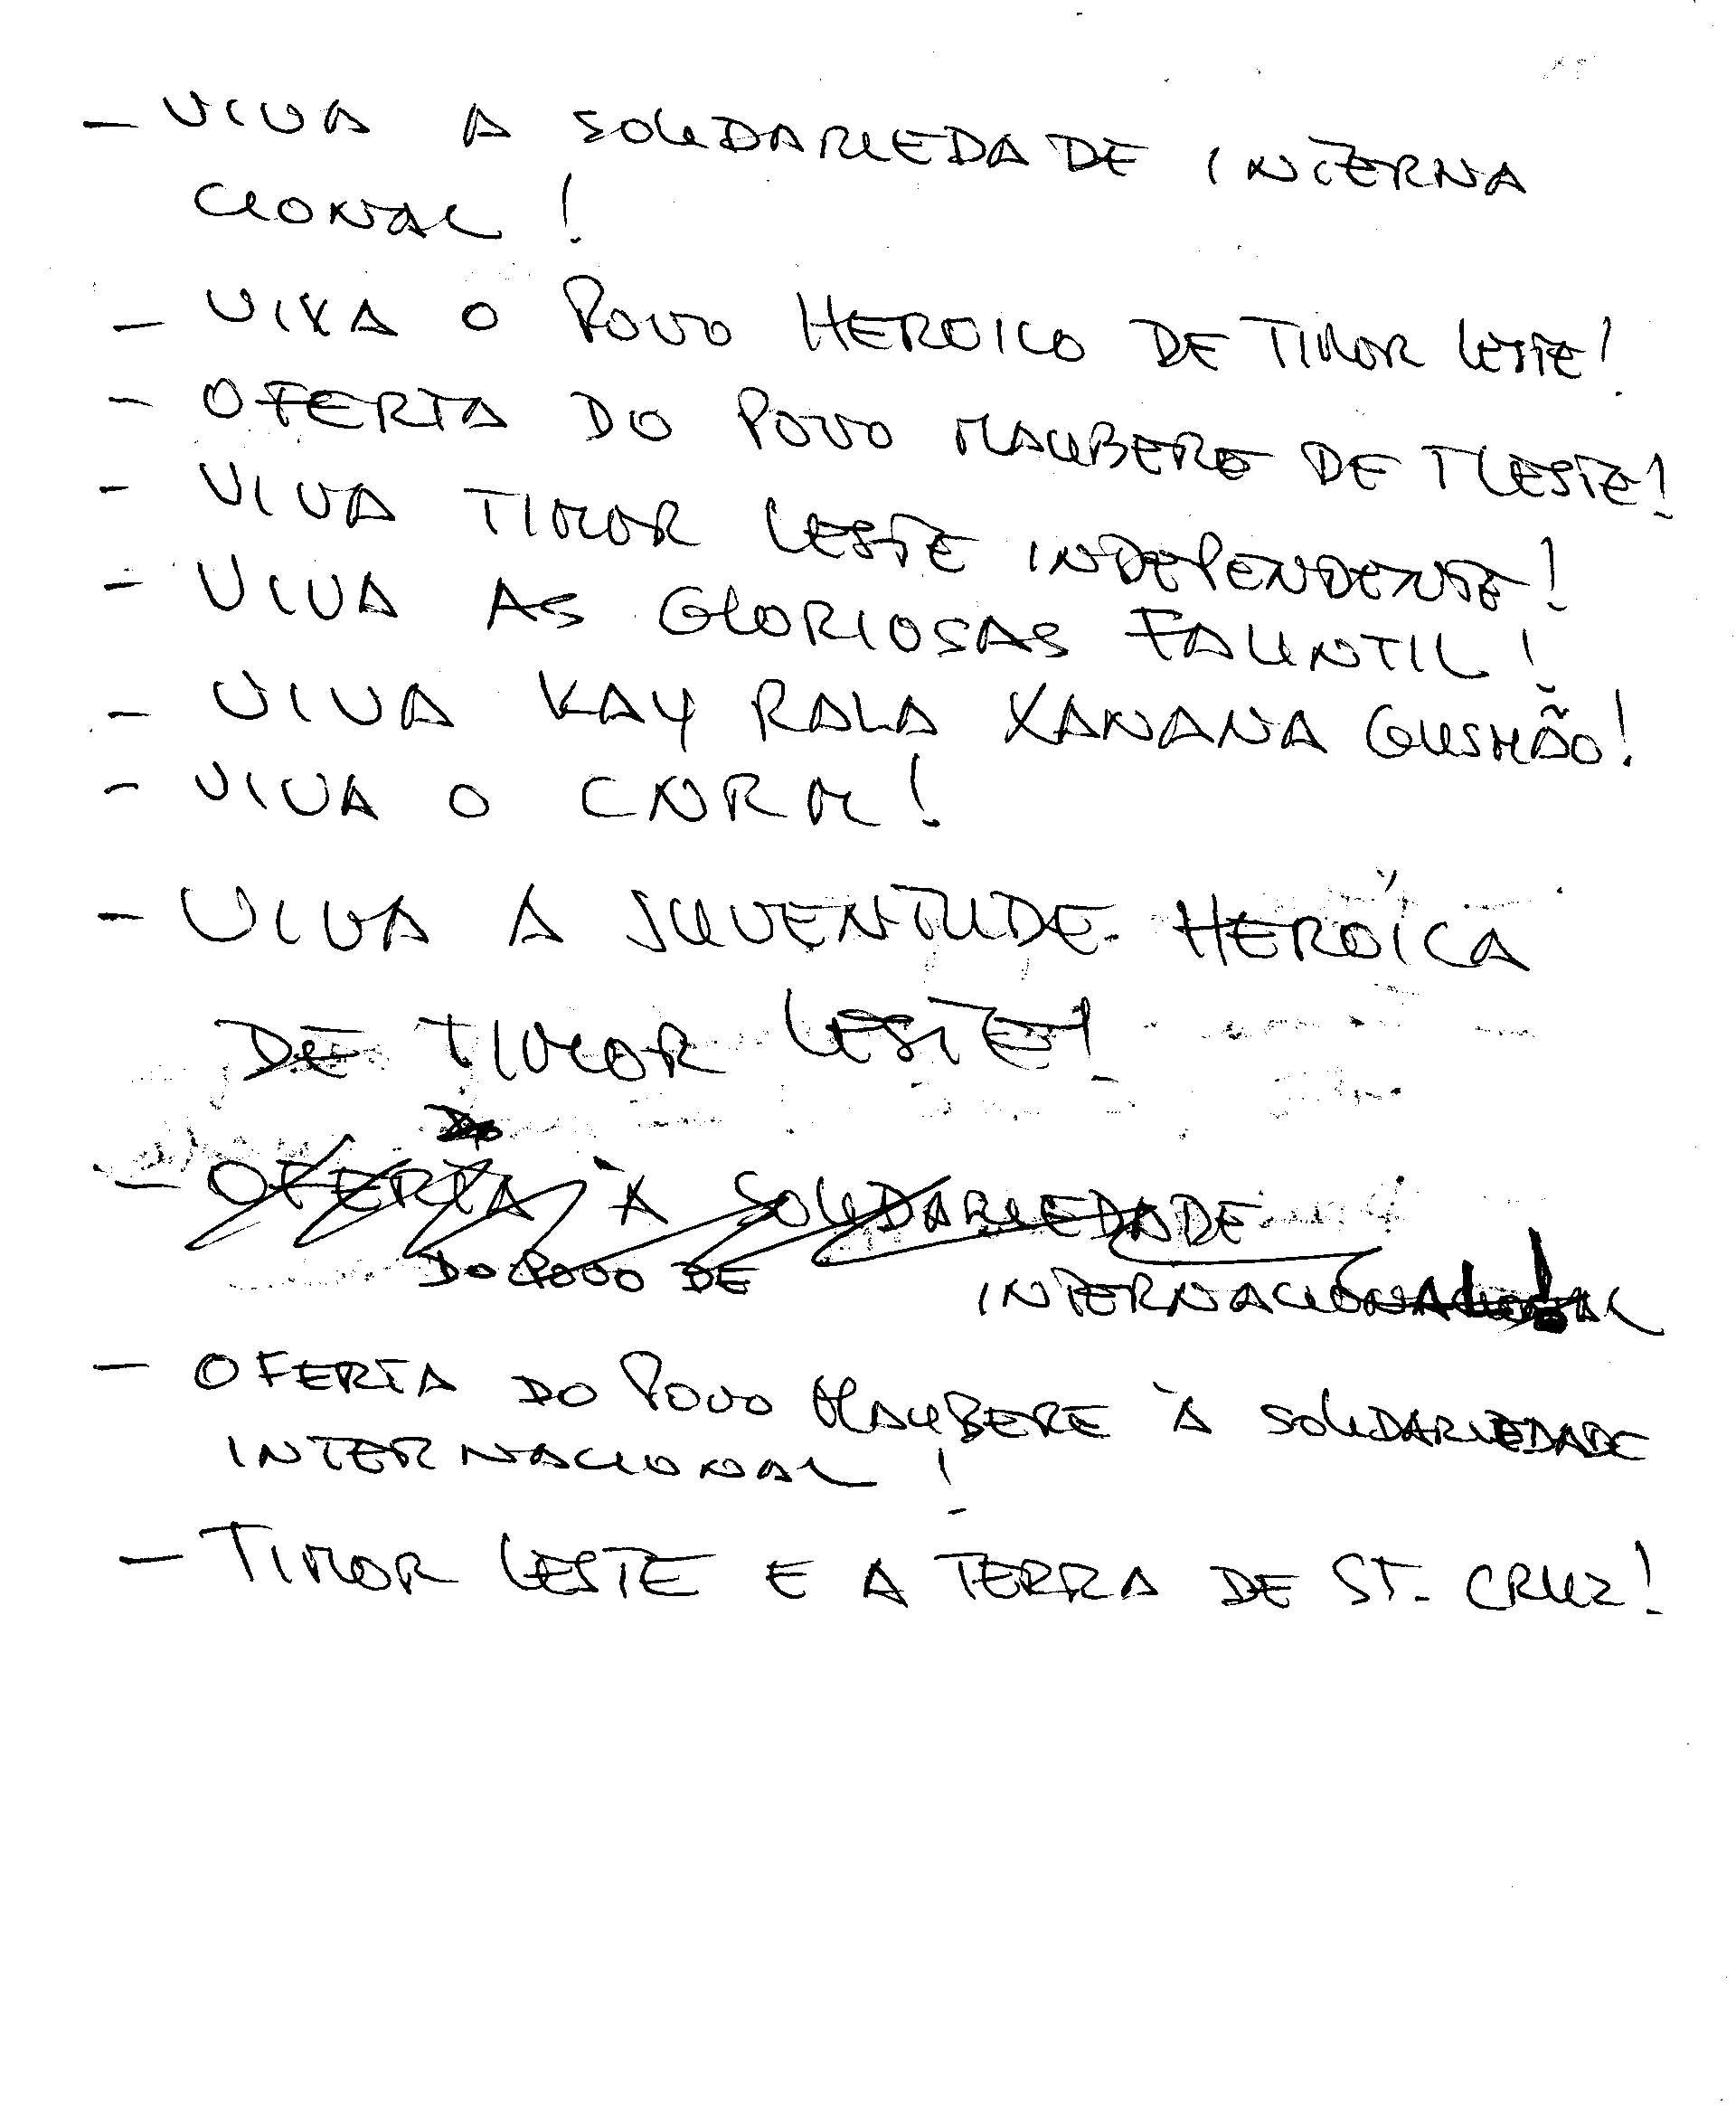 - VIVA A SOLIDARIEDADE INTERNA
CIONAL!
- VIVA O POVO HEROICO DE TIMOR LESTE!
- OFERTA DO POVO MAUBERE DE TLESTE!
- VIVA TIMOR LESTE INDEPENDENTE!
- VIVA AS GLORIOSAS FALINTIL!
- VIVA KAY RALA XANANA GUSMÃO!
- VIVA O CNRM!
- VIVA A JUVENTUDE HEROÍCA
DE TIMOR LESTE!
- OFERTA À SOLIDARIEDADE
DO POVO DE INTERNACIONAL
- OFERTA DO POVO MAUBERE À SOLIDARIEDADE
INTERNACIONAL!
- TIMOR LESTE E A TERRA DE ST. CRUZ!